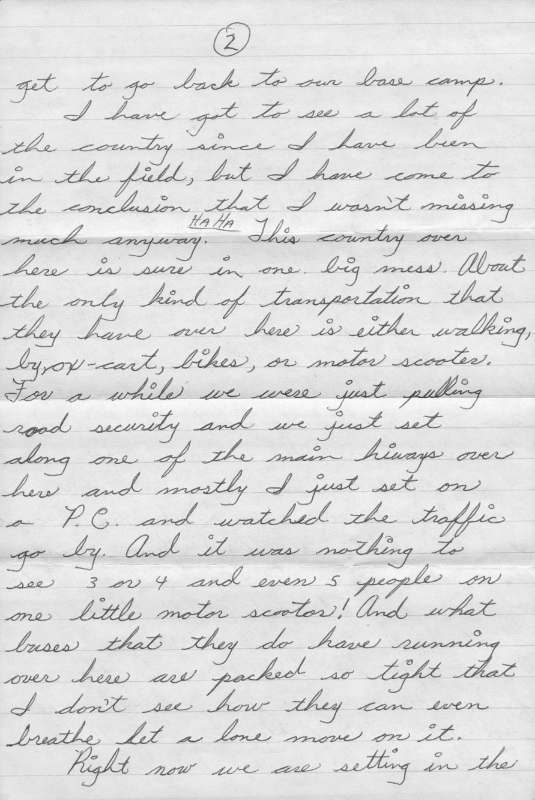 2
get to go back to our base camp.
I have got to see a lot of
the country since I have been
in the field, but I have come to
the conclusion that I wasn't missing
HA HA
much anyway. This country over
here is sure in one big mess. About
the only kind of transportation that
they have over here is either walking,
by, ox-cart, bikes, or motor scooter.
For a while we were just pulling
road security and we just set
along one of the main hiways over
here and mostly I just set on
a P.C. and watched the traffic
go by. And it was nothing to
see 3 or 4 and even 5 people on
one little motor scooter! And what
buses that they do have running
over here are packed so tight that
I don't see how they can even
breathe let a lone move on it.
Right now we are setting in the